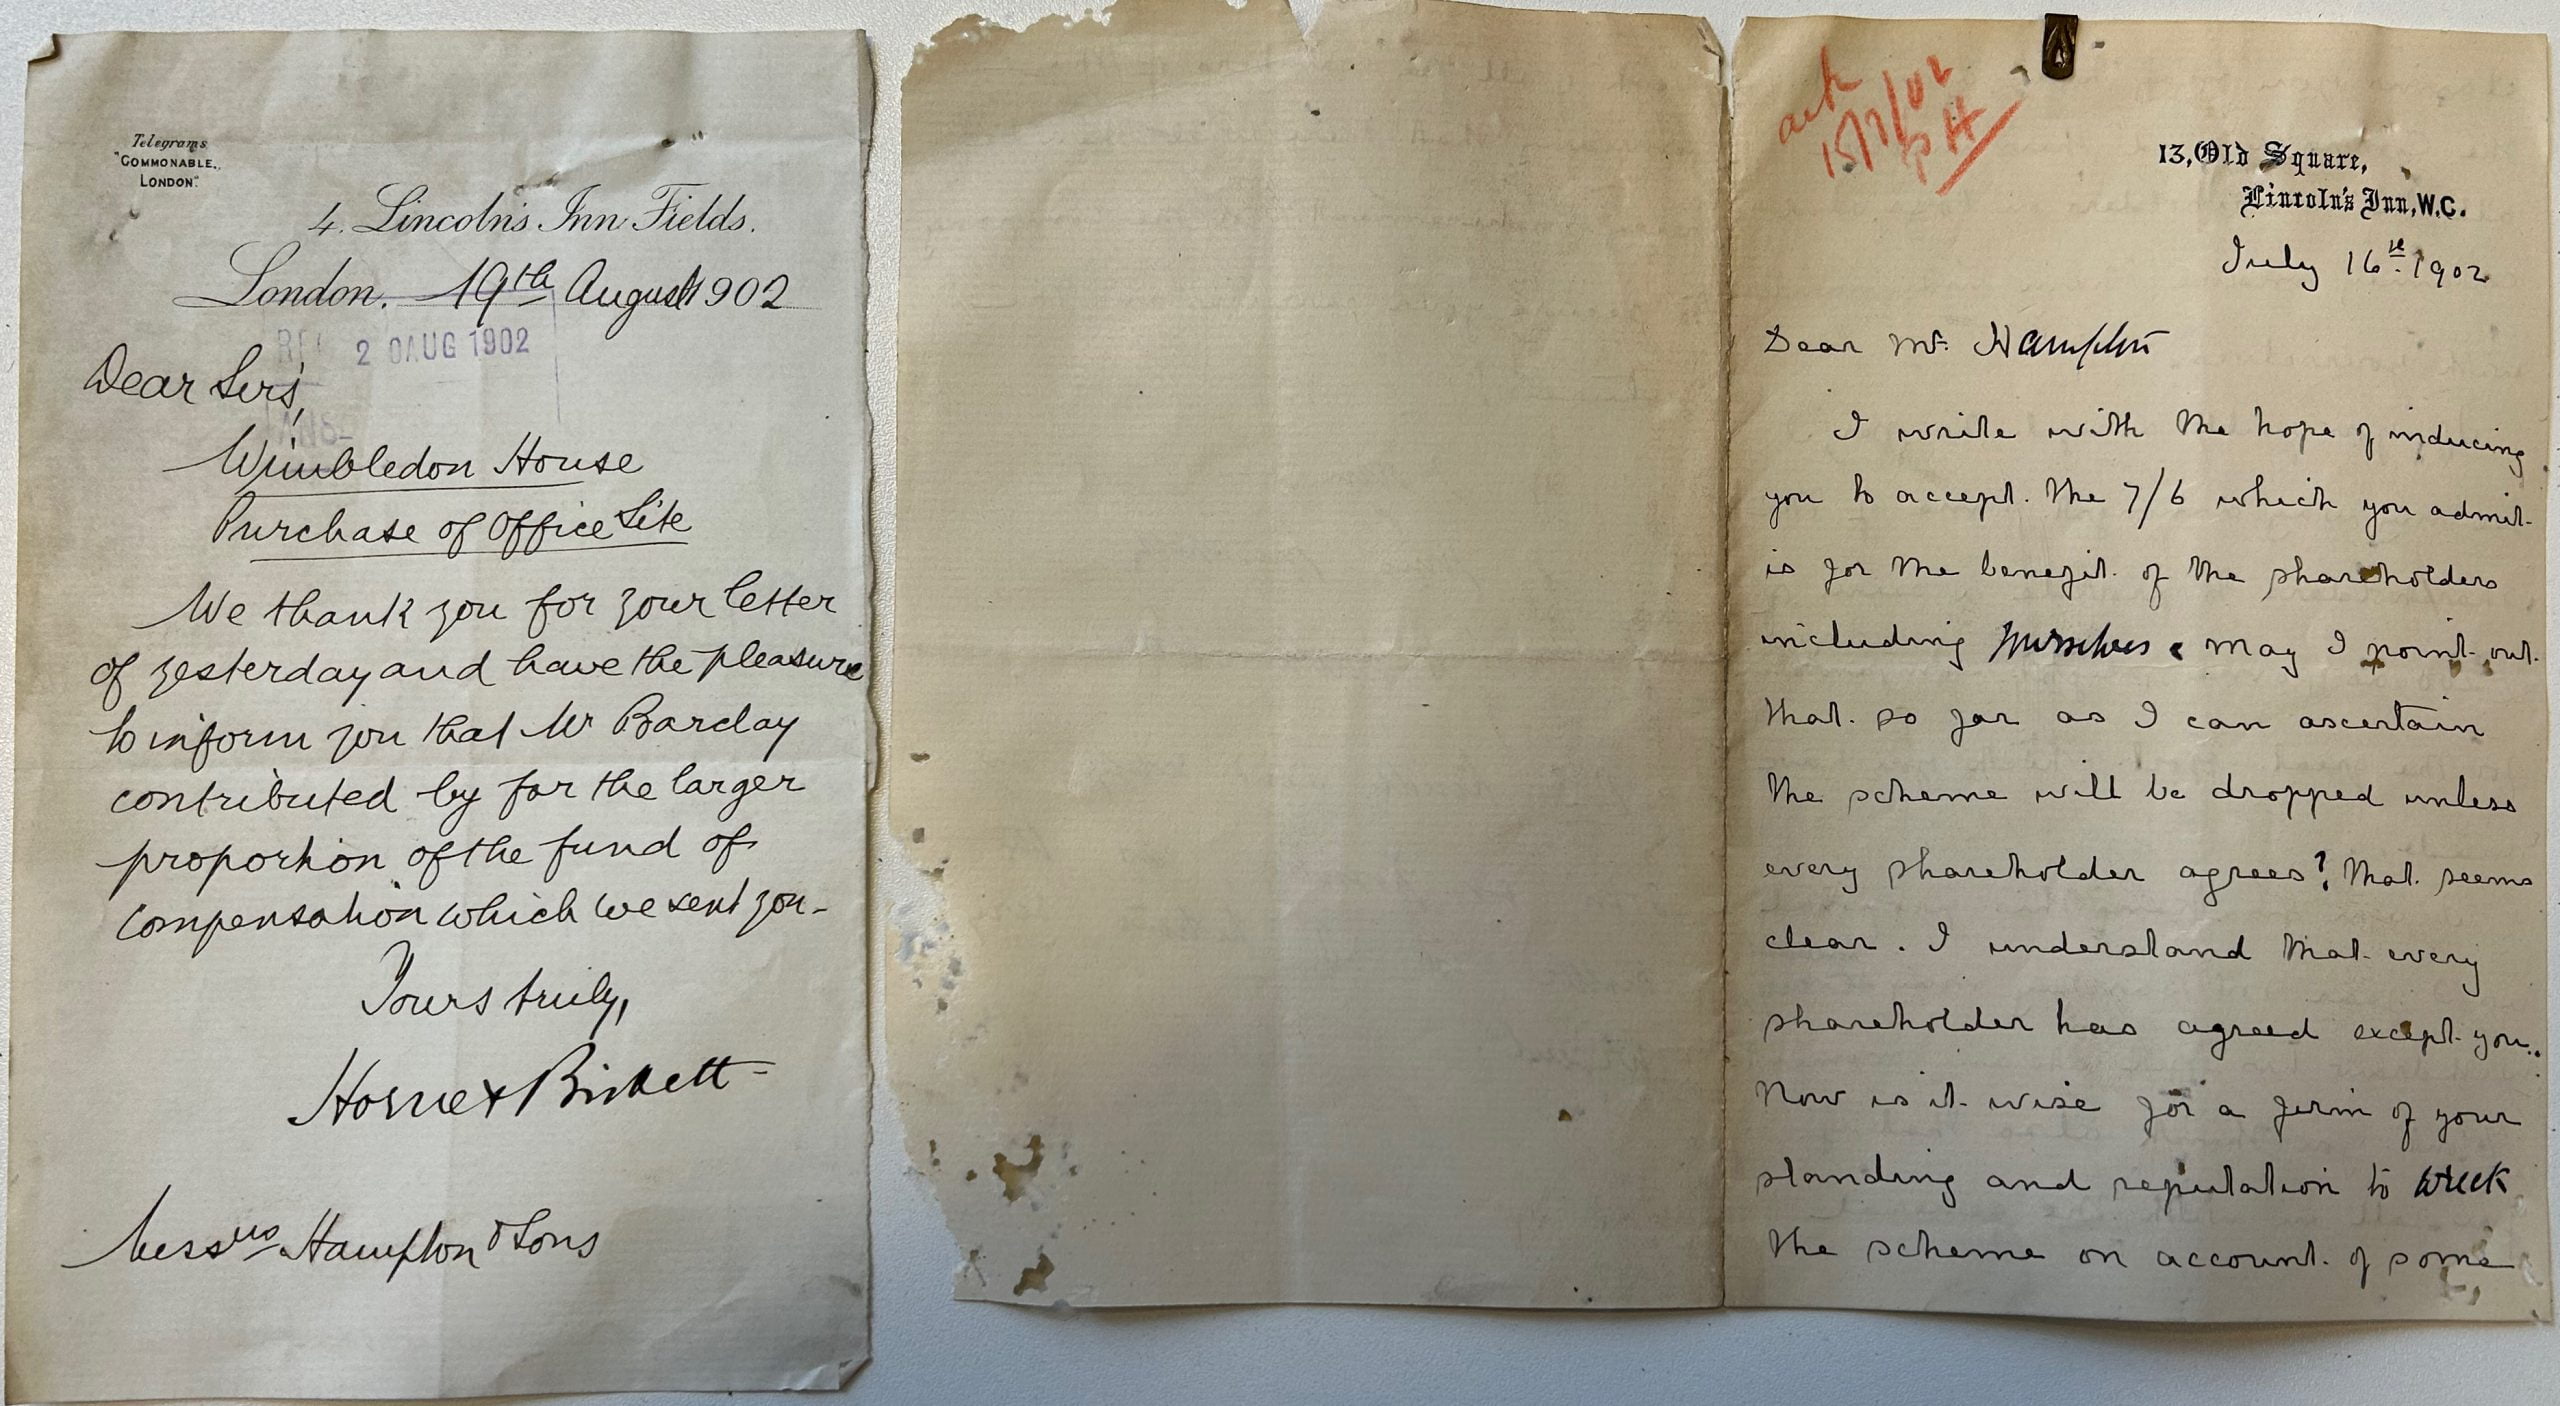 Telegrams
"COMMONABLE,
LONDON."
4. Lincoln's Inn Fields.
London. 19th August 1902
2 0 AUG 1902
Dear Sirs,
Wimbledon House
Purchase of Office Site
We thank you for your letter
of yesterday and have the pleasure
to inform you that Mr Barclay
contributed by far the larger
proportion of the fund of
compensation which we sent you -
Yours truly,
Horne & Birkett
Messrs Hampton & Sons
15/7/02
PH
13, Old Square,
Lincoln's Inn, W.C.
July 16th 1902
Dear Mr. Hampton
I write with the hope of inducing
you to accept. the 7/6 which you admit
is for the benefit of the shareholders
including yourselves. May I point out
that so far as I can ascertain
the scheme will be dropped unless
every shareholder agrees? That seems
clear. I understand that every
shareholder has agreed except you.
Now is it wise for a firm of your
standing and reputation to wreck
the scheme on account of some